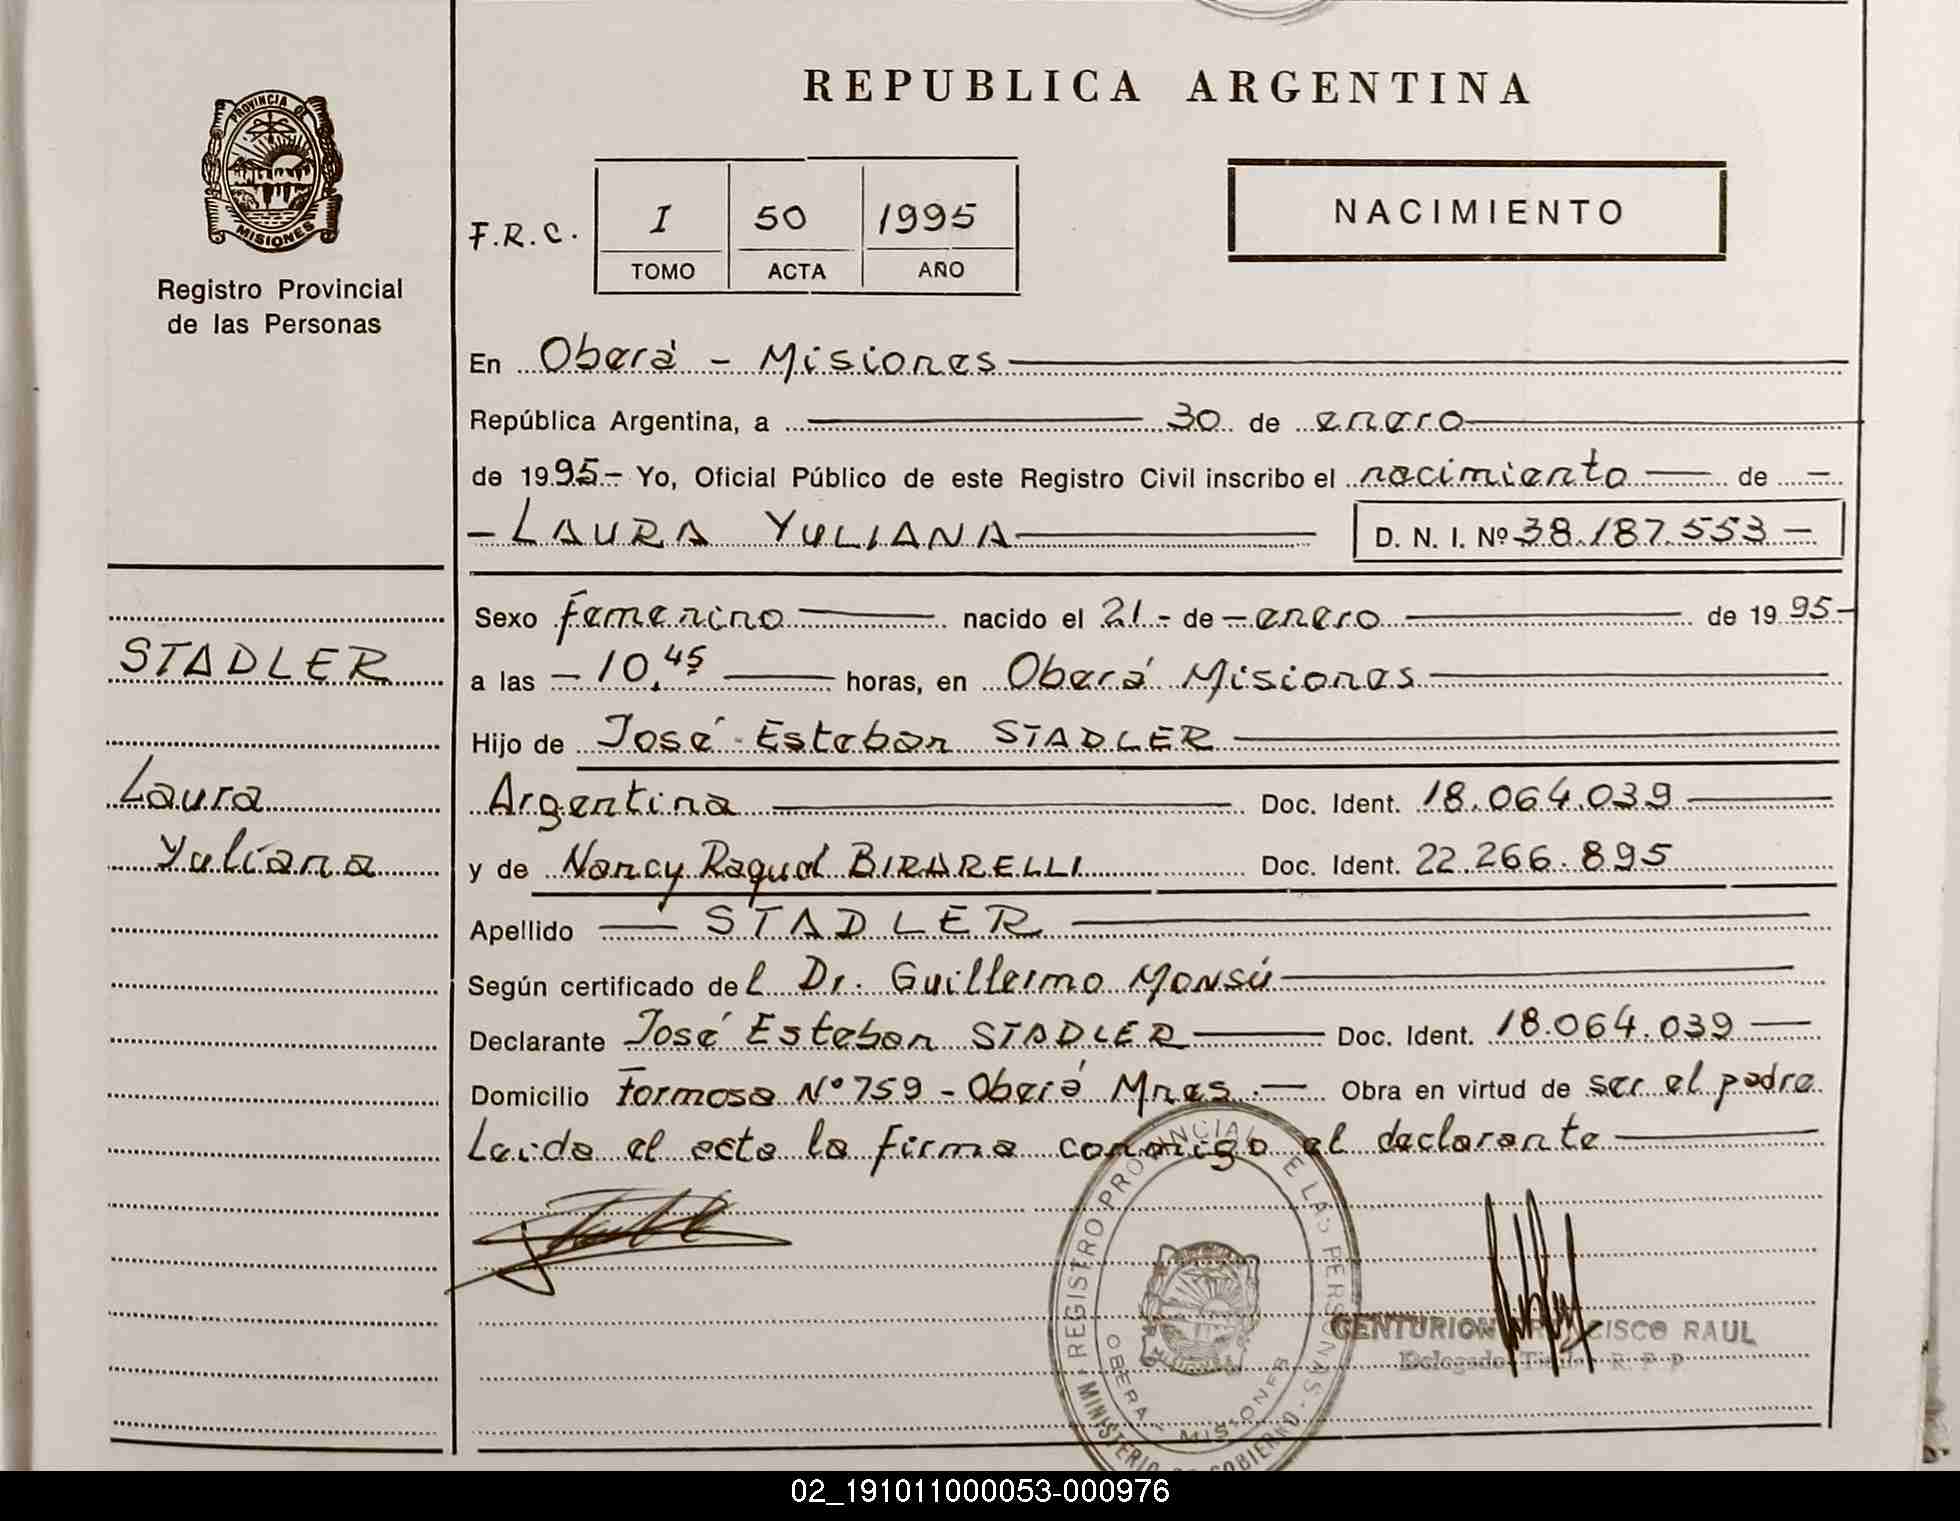 REPUBLICA ARGENTINA
PROVINCIA DE
MISIONES
Registro Provincial
de las Personas
F.R.C.
I 50 1995
TOMO ACTA AÑO
NACIMIENTO
En Oberá - Misiones
República Argentina, a 30 de enero
de 1995- Yo, Oficial Público de este Registro Civil inscribo el nacimiento de -
- LAURA YULIANA D. N. I. Nº 38.187.553 -
STADLER
Laura
Yuliana
Sexo femenino nacido el 21 - de - enero de 1995-
a las - 10,45 horas, en Oberá Misiones
Hijo de José Esteban STADLER
Argentina Doc. Ident. 18.064.039
y de Nancy Raquel BIRARELLI Doc. Ident. 22.266.895
Apellido STADLER
Según certificado del Dr. Guillermo Monsú
Declarante José Esteban STADLER Doc. Ident. 18.064.039
Domicilio Formosa Nº 759 - Oberá Mnes. Obra en virtud de ser el padre
Leida el acta la firma conmigo el declarante
REGISTRO PROVINCIAL DE LAS PERSONAS
OBERA MISIONES
MINISTERIO DE GOBIERNO
CENTURION FRANCISCO RAUL
Delegado Titular R. P. P
02_191011000053-000976